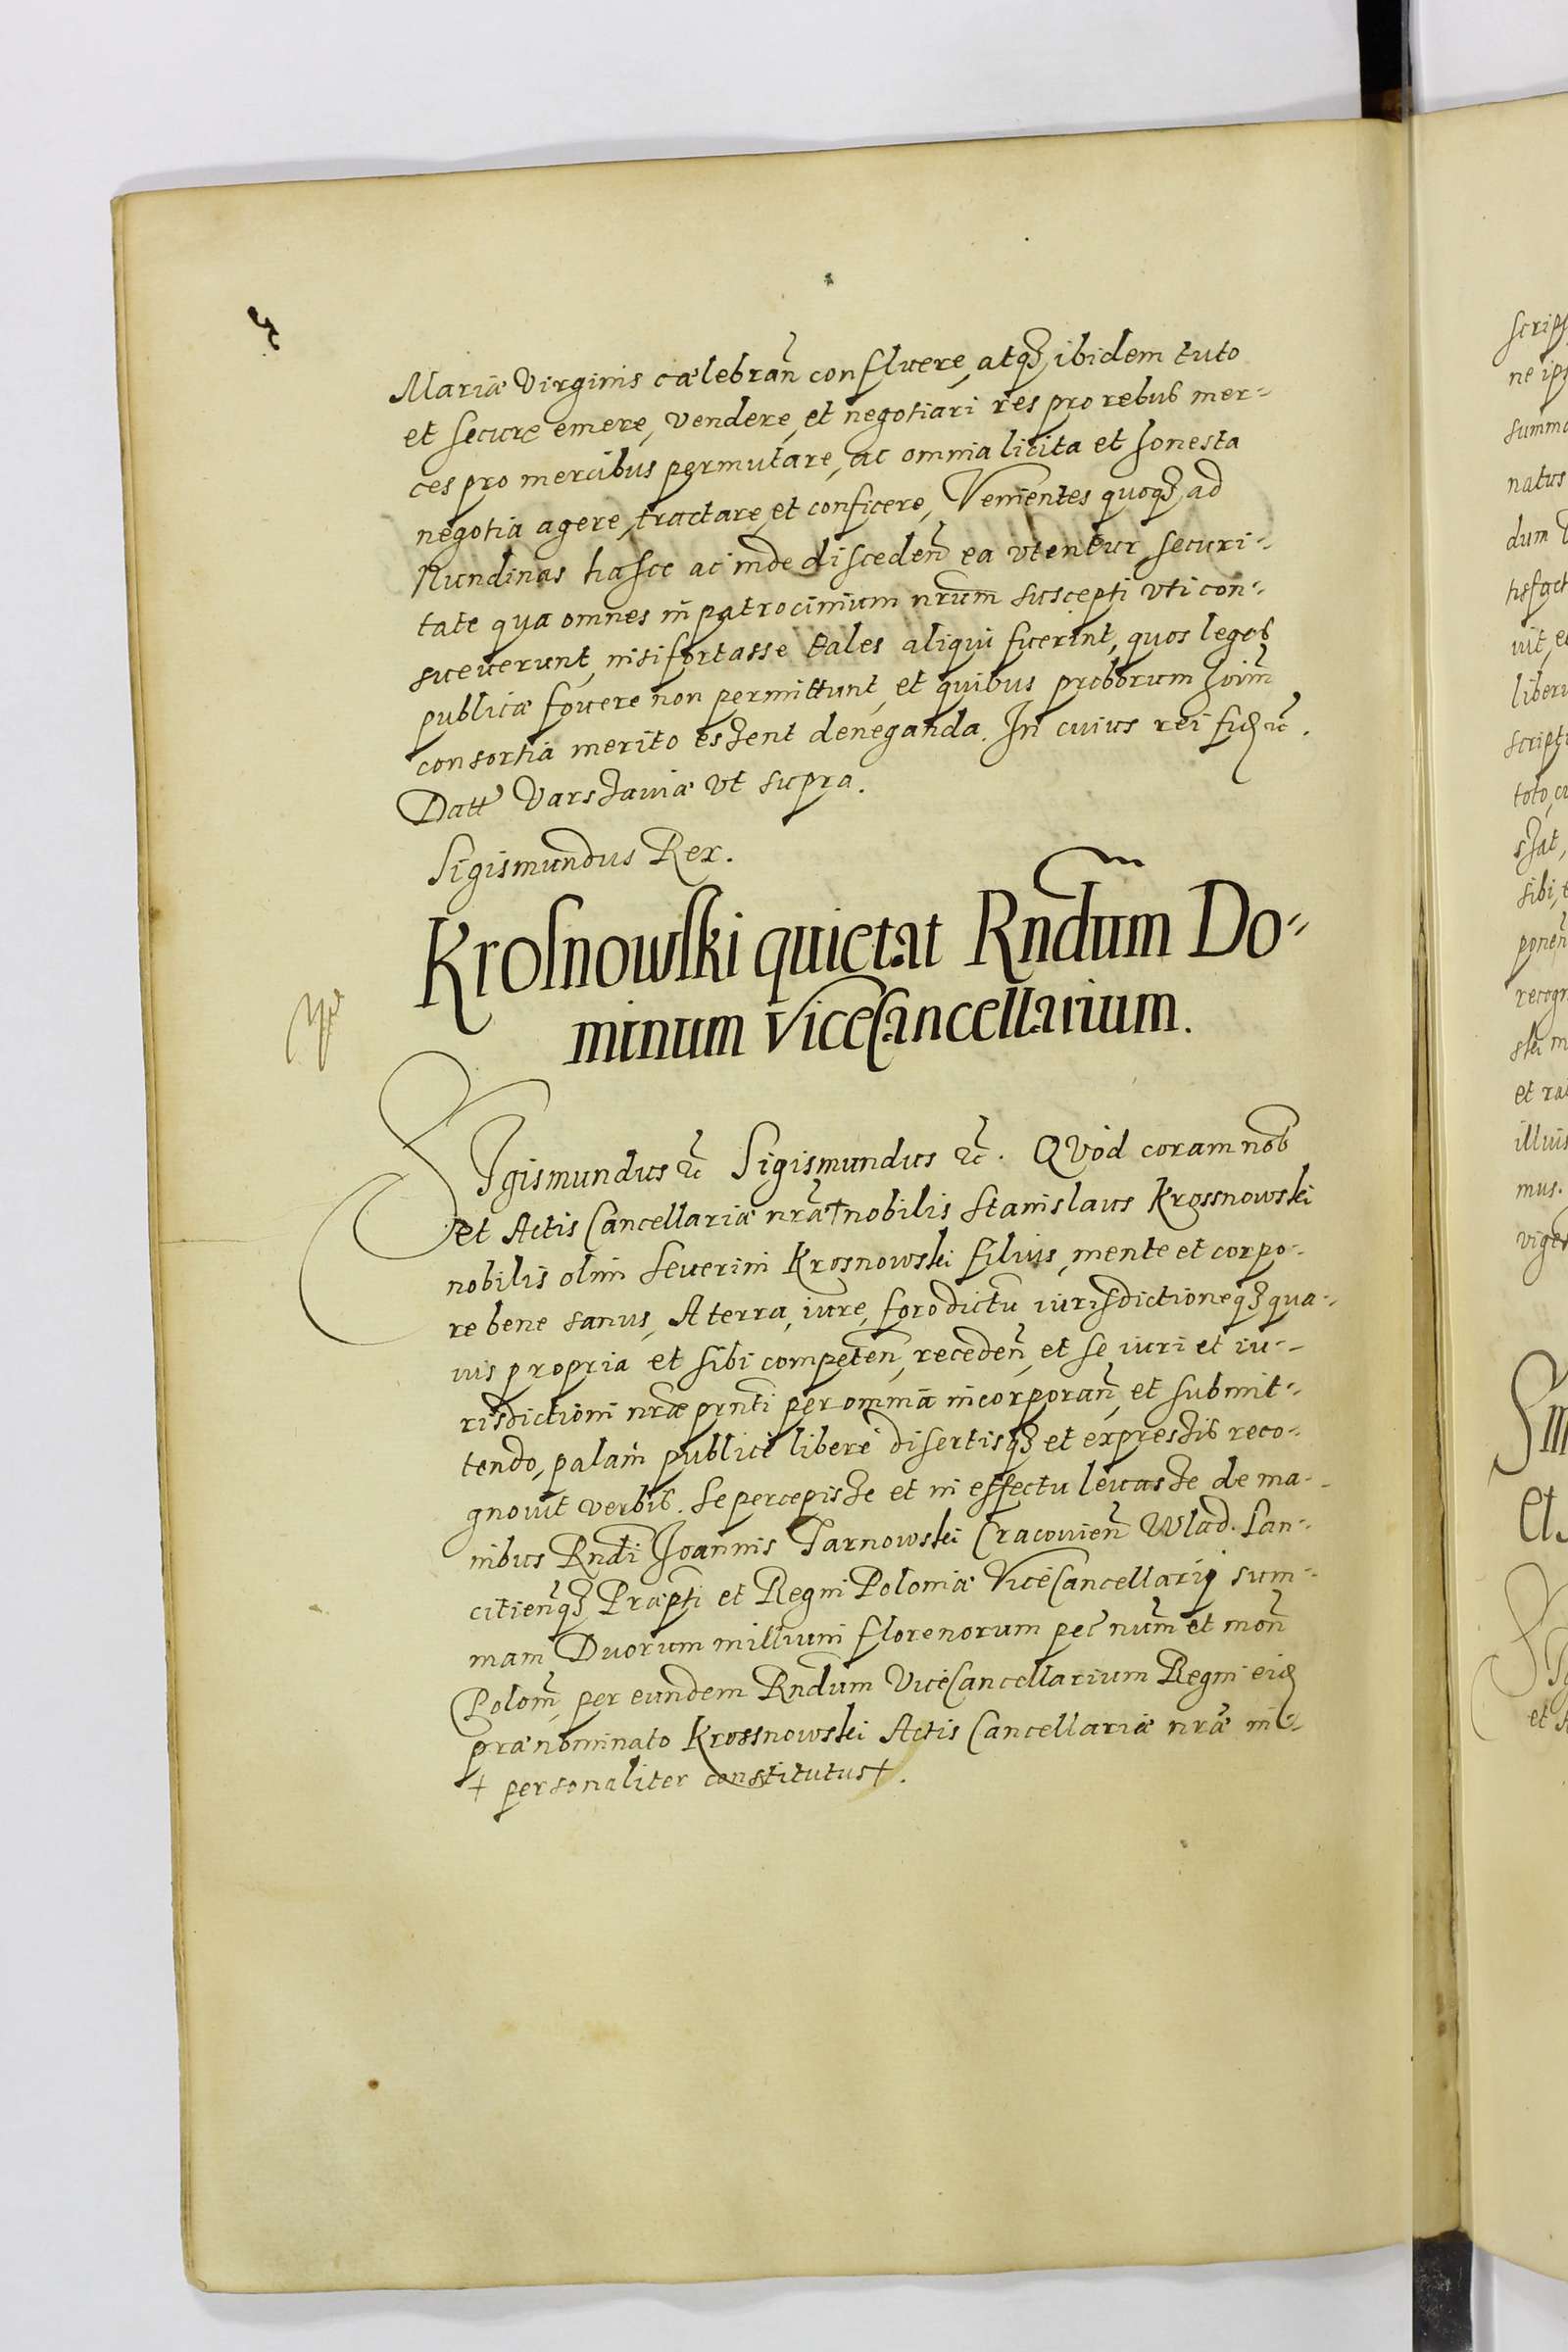 Mariæ Virginis cælebrañ confluere, atqꝫ ibidem tuto
et secure emere, vendere, et negotiari res pro rebus mer-
ces pro mercibus permutare, ac omnia licita et honesta
negotia agere, tractare, et conficere, Venientes quoqꝫ ad
Nundinas hasce ac inde disceden̄ ea vtentur securi-
tate qua omnes in patrocinium nrum̄ suscepti vti con-
sueuerunt, nisi fortasse tales aliqui fuerint, quos leges
publicæ fouere non permittunt, et quibus proborum hoīm
consortia merito essent deneganda. In cuius rei fid ꝛc̄.
Datt Varssauiæ vt supra.
Sigismundus Rex.
Krosnowski quietat Rndum̄ Do-
minum ViceCancellarium.
SIgismundus ꝛc̄ Sigismundus ꝛc̄. QVod coram nob
et Actis Cancellariæ nr̄æ + nobilis Stanislaus Krossnowski
nobilis olim Seuerini Krosnowski filius, mente et corpo-
re bene sanus, A terra, iure, foro dictu iurisdictioneqꝫ qua-
uis propria et sibi competen̄, receden̄, et se iuri et iu-
risdictioni nr̄æ prnti per omnia incorporan̄, et submit-
tendo, palam publicè liberè disertisqꝫ et expressis reco-
gnouit verbis. Se percepisse et in effectu leuasse de ma-
nibus Rndi Joannis Tarnowski Cracouien̄ Wlad. Lan-
citien̄qꝫ Præpti et Regni Poloniæ ViceCancellarij sum-
mam Duorum millium florenorum pec̄ num̄ et mon̄
Polon̄, per eundem Rndum ViceCancellarium Regni eid
prænominato Krossnowski Actis Cancellariæ nr̄æ in-
+ personaliter constitutus +.